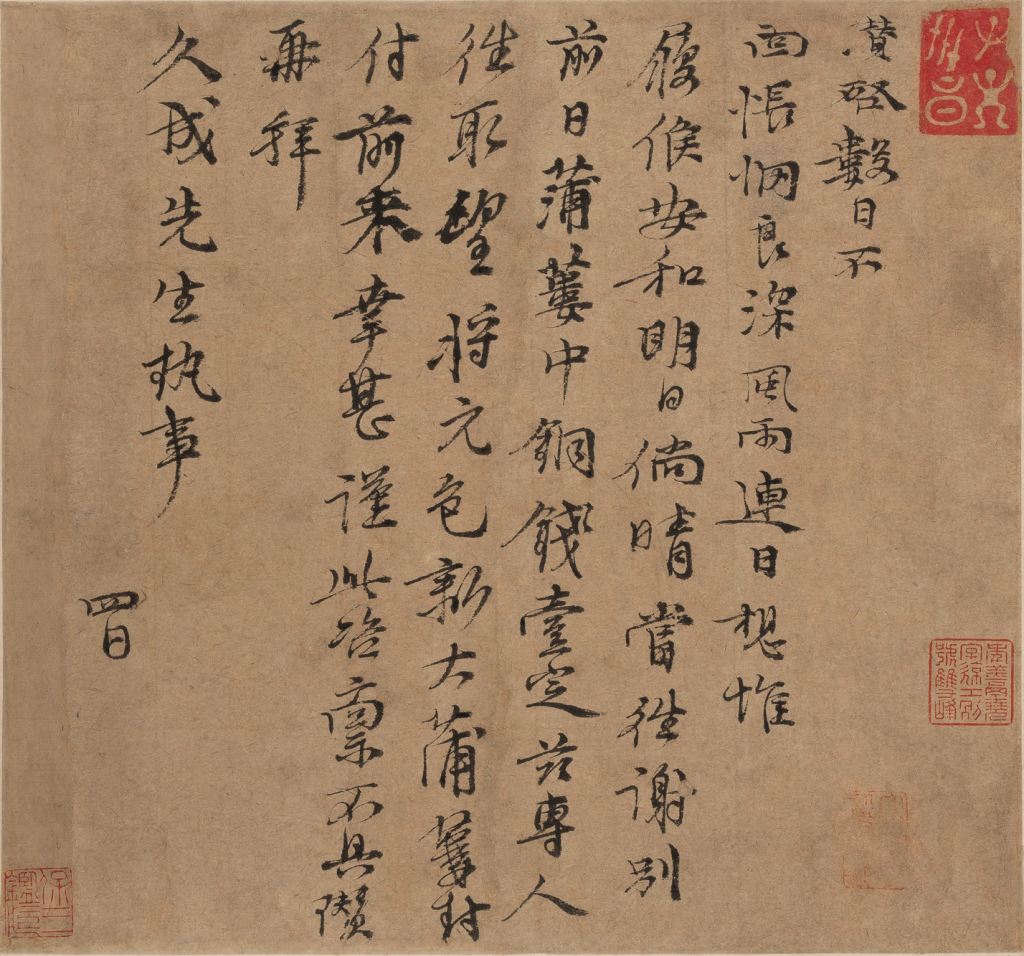 瓚啓數日不
面悵惘良深風雨連日想惟
履候安和明日倘晴當往謝別
前日蒲蔞中銅錢壹定茲專人
往取望將元色新大蒲蔞封
付前來幸甚謹此咨稟不具瓚
再拜
久成先生執事
四日